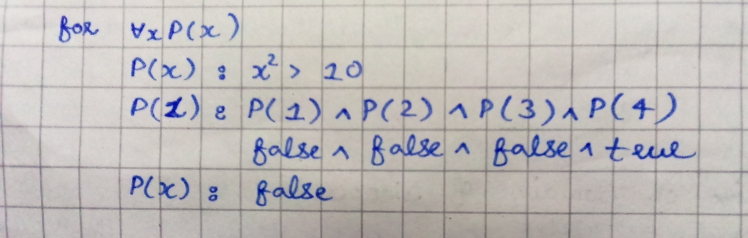 for ∀x P(x)
P(x) : x² > 10
P(1) : P(1) ∧ P(2) ∧ P(3) ∧ P(4)
false ∧ false ∧ false ∧ true
P(x) : false